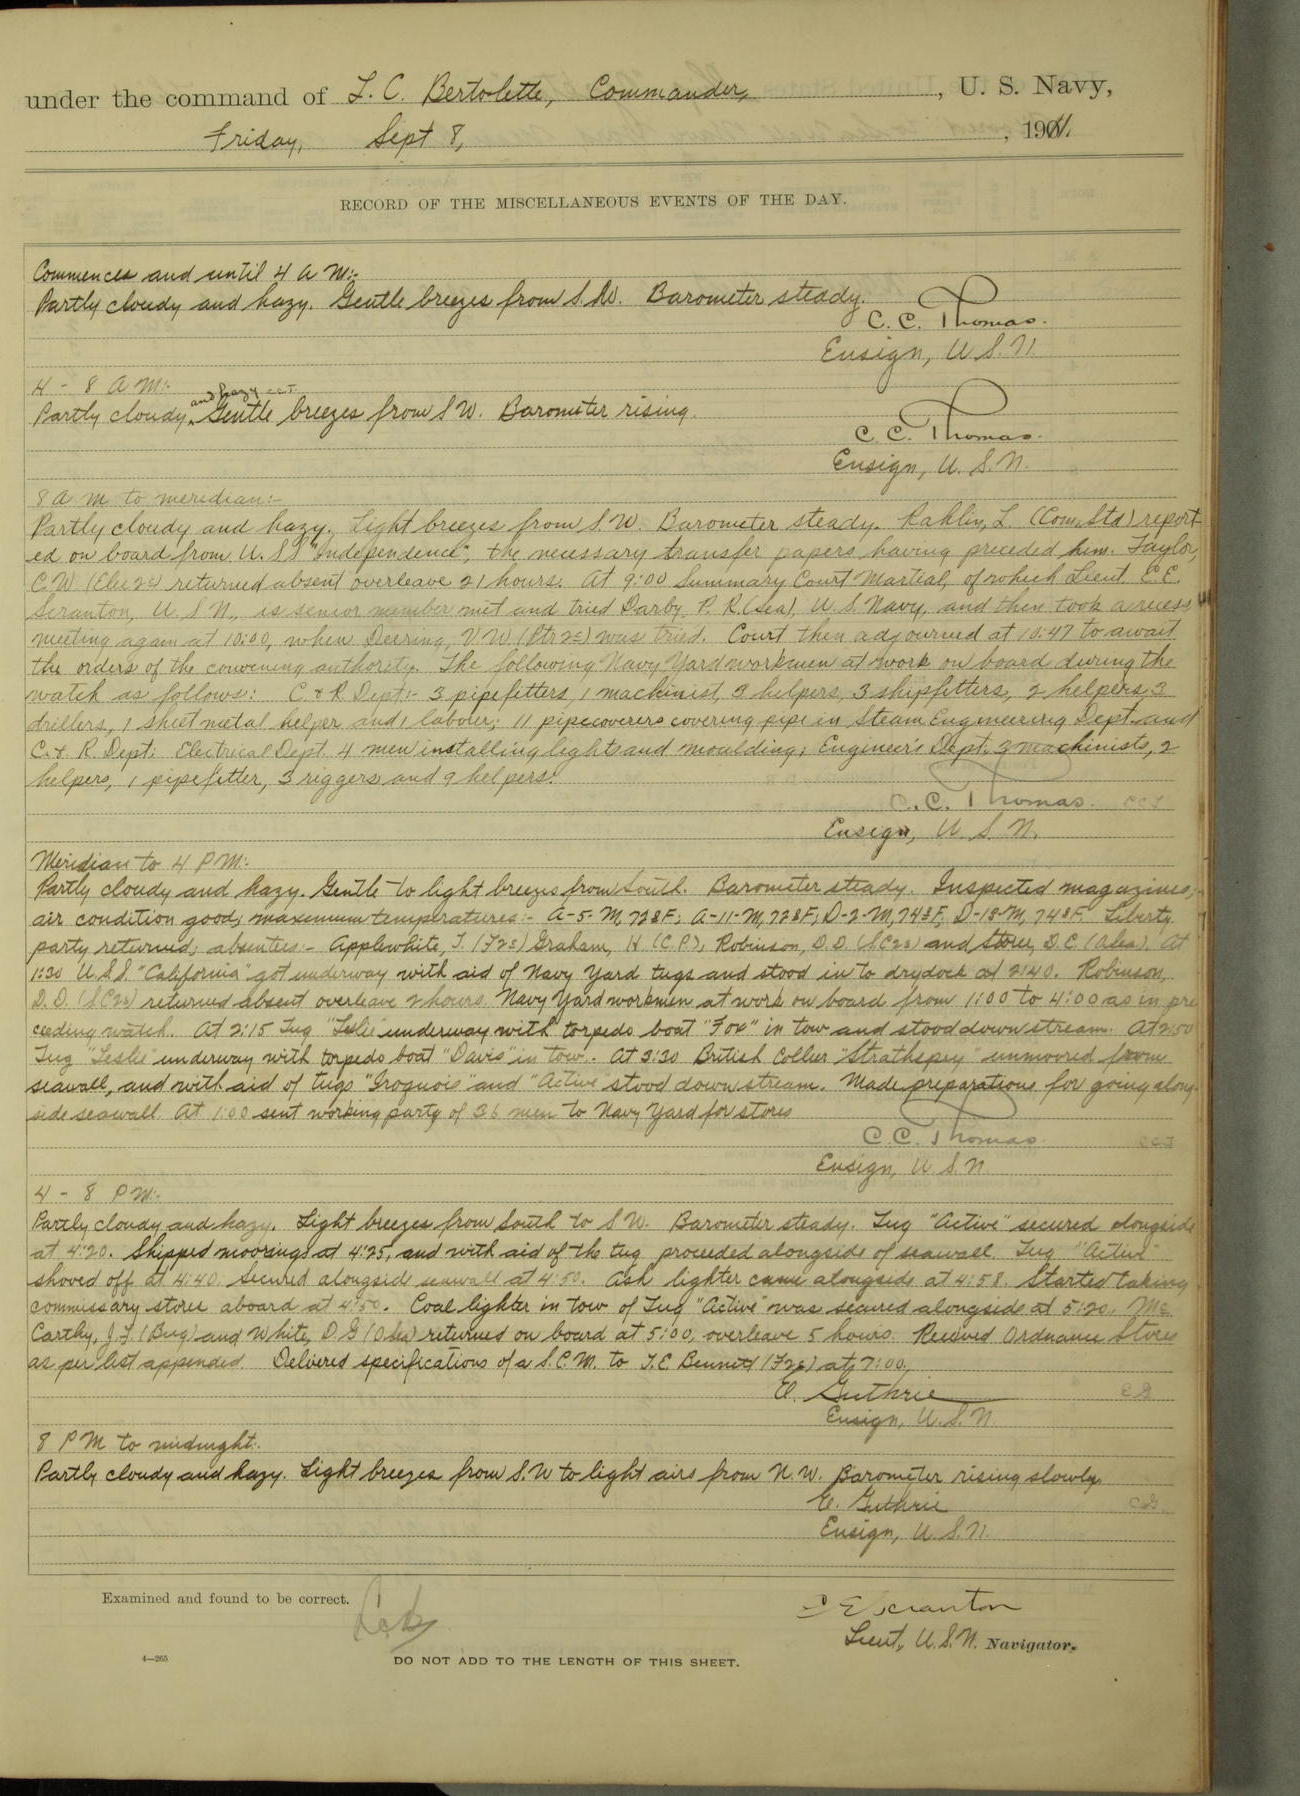 under the command of L. C. Bertolette, Commander, , U. S. Navy,
Friday, Sept 8, , 1911.
RECORD OF THE MISCELLANEOUS EVENTS OF THE DAY.
Commences and until 4 A M:-
Partly cloudy and hazy. Gentle breezes from S.W. Barometer steady.
C. C. Thomas.
Ensign, U S. N.
4 - 8 A M:-
and hazy C.C.T.
Partly cloudy. Gentle breezes from S W. Barometer rising.
C. C. Thomas.
Ensign, U. S. N.
8 A m to meridian:-
Partly cloudy and hazy. Light breezes from S.W. Barometer steady. Rahlin, L. (Com. Std) report-
ed on board from U.S.S "Independence", the necessary transfer papers having preceded him. Taylor,
C W (Elec 2c) returned absent overleave 21 hours. At 9:00 Summary Court Martial, of which Lieut. C.E.
Scranton, U. S. N., is senior member met and tried Darby, P. R. (sea), U. S. Navy, and then took a recess
meeting again at 10:00, when Deering, V. W (Ptr 2c) was tried. Court then adjourned at 10:47 to await
the orders of the convening authority. The following Navy Yard workmen at work on board during the
watch as follows: C & R Dept:- 3 pipefitters, 1 machinist, 3 helpers, 3 shipfitters, 2 helpers 3
drillers, 1 sheet metal helper and 1 laborer; 11 pipecoverers covering pipe in Steam Engineering Dept. and
C. & R. Dept; Electrical Dept. 4 men installing lights and moulding; Engineer's Dept. 3 machinists, 2
helpers, 1 pipefitter, 3 riggers and 9 helpers.
C. C. Thomas. CCT
Ensign, U S. N.
Meridian to 4 P M:-
Partly cloudy and hazy. Gentle to light breezes from South. Barometer steady. Inspected magazines;
air condition good; maximum temperatures:- A-5-M, 72°F; A-11-M, 72°F; D-2-M, 74°F, D-13-M, 74°F. Liberty
party returned; absentees:- Applewhite, J. (F2c) Graham, H (C.P.), Robinson, D. D. (SC2c) and Storer, D.C. (Osea). At
1:30 U.S.S. "California" got underway with aid of Navy Yard tugs and stood in to drydock at 2:40. Robinson,
D. D. (SC2c) returned absent overleave 2 hours. Navy Yard workmen at work on board from 1:00 to 4:00 as in pre
ceeding watch. At 2:15 Tug "Leslie" underway with torpedo boat "Fox" in tow and stood down stream. At 2:50
Tug "Leslie" underway with torpedo boat "Davis" in tow. At 3:30 British Collier "Strathspey" unmoored from
seawall, and with aid of tugs "Iroquois" and "Active" stood down stream. Made preparations for going along-
side seawall. At 1:00 sent working party of 36 men to Navy Yard for stores
C. C. Thomas CCT
Ensign, U. S. N
4 - 8 P M:-
Partly cloudy and hazy. Light breezes from South to S W. Barometer steady. Tug "Active" secured alongside
at 4:20. Shipped moorings at 4:25, and with aid of the tug proceeded alongside of seawall. Tug "Active"
shoved off at 4:40. Secured alongside seawall at 4:50. Ash lighter came alongside at 4:58. Started taking
commissary stores aboard at 4:50. Coal lighter in tow of Tug "Active" was secured alongside at 5:20. Mc
Carthy, J.J. (Bug) and White, D G (Osea) returned on board at 5:00, overleave 5 hours. Received Ordnance Stores
as per list appended. Delivered specifications of a S.C.M. to J.E. Bennett (F2c) at 7:00.
E. Guthrie
Ensign, U. S. N.
8 P M to midnight:-
Partly cloudy and hazy. Light breezes from S.W to light airs from N.W. Barometer rising slowly.
E. Guthrie
Ensign, U. S. N.
Examined and found to be correct.
C E Scranton
Lieut., U.S.N. Navigator.
4—265
DO NOT ADD TO THE LENGTH OF THIS SHEET.